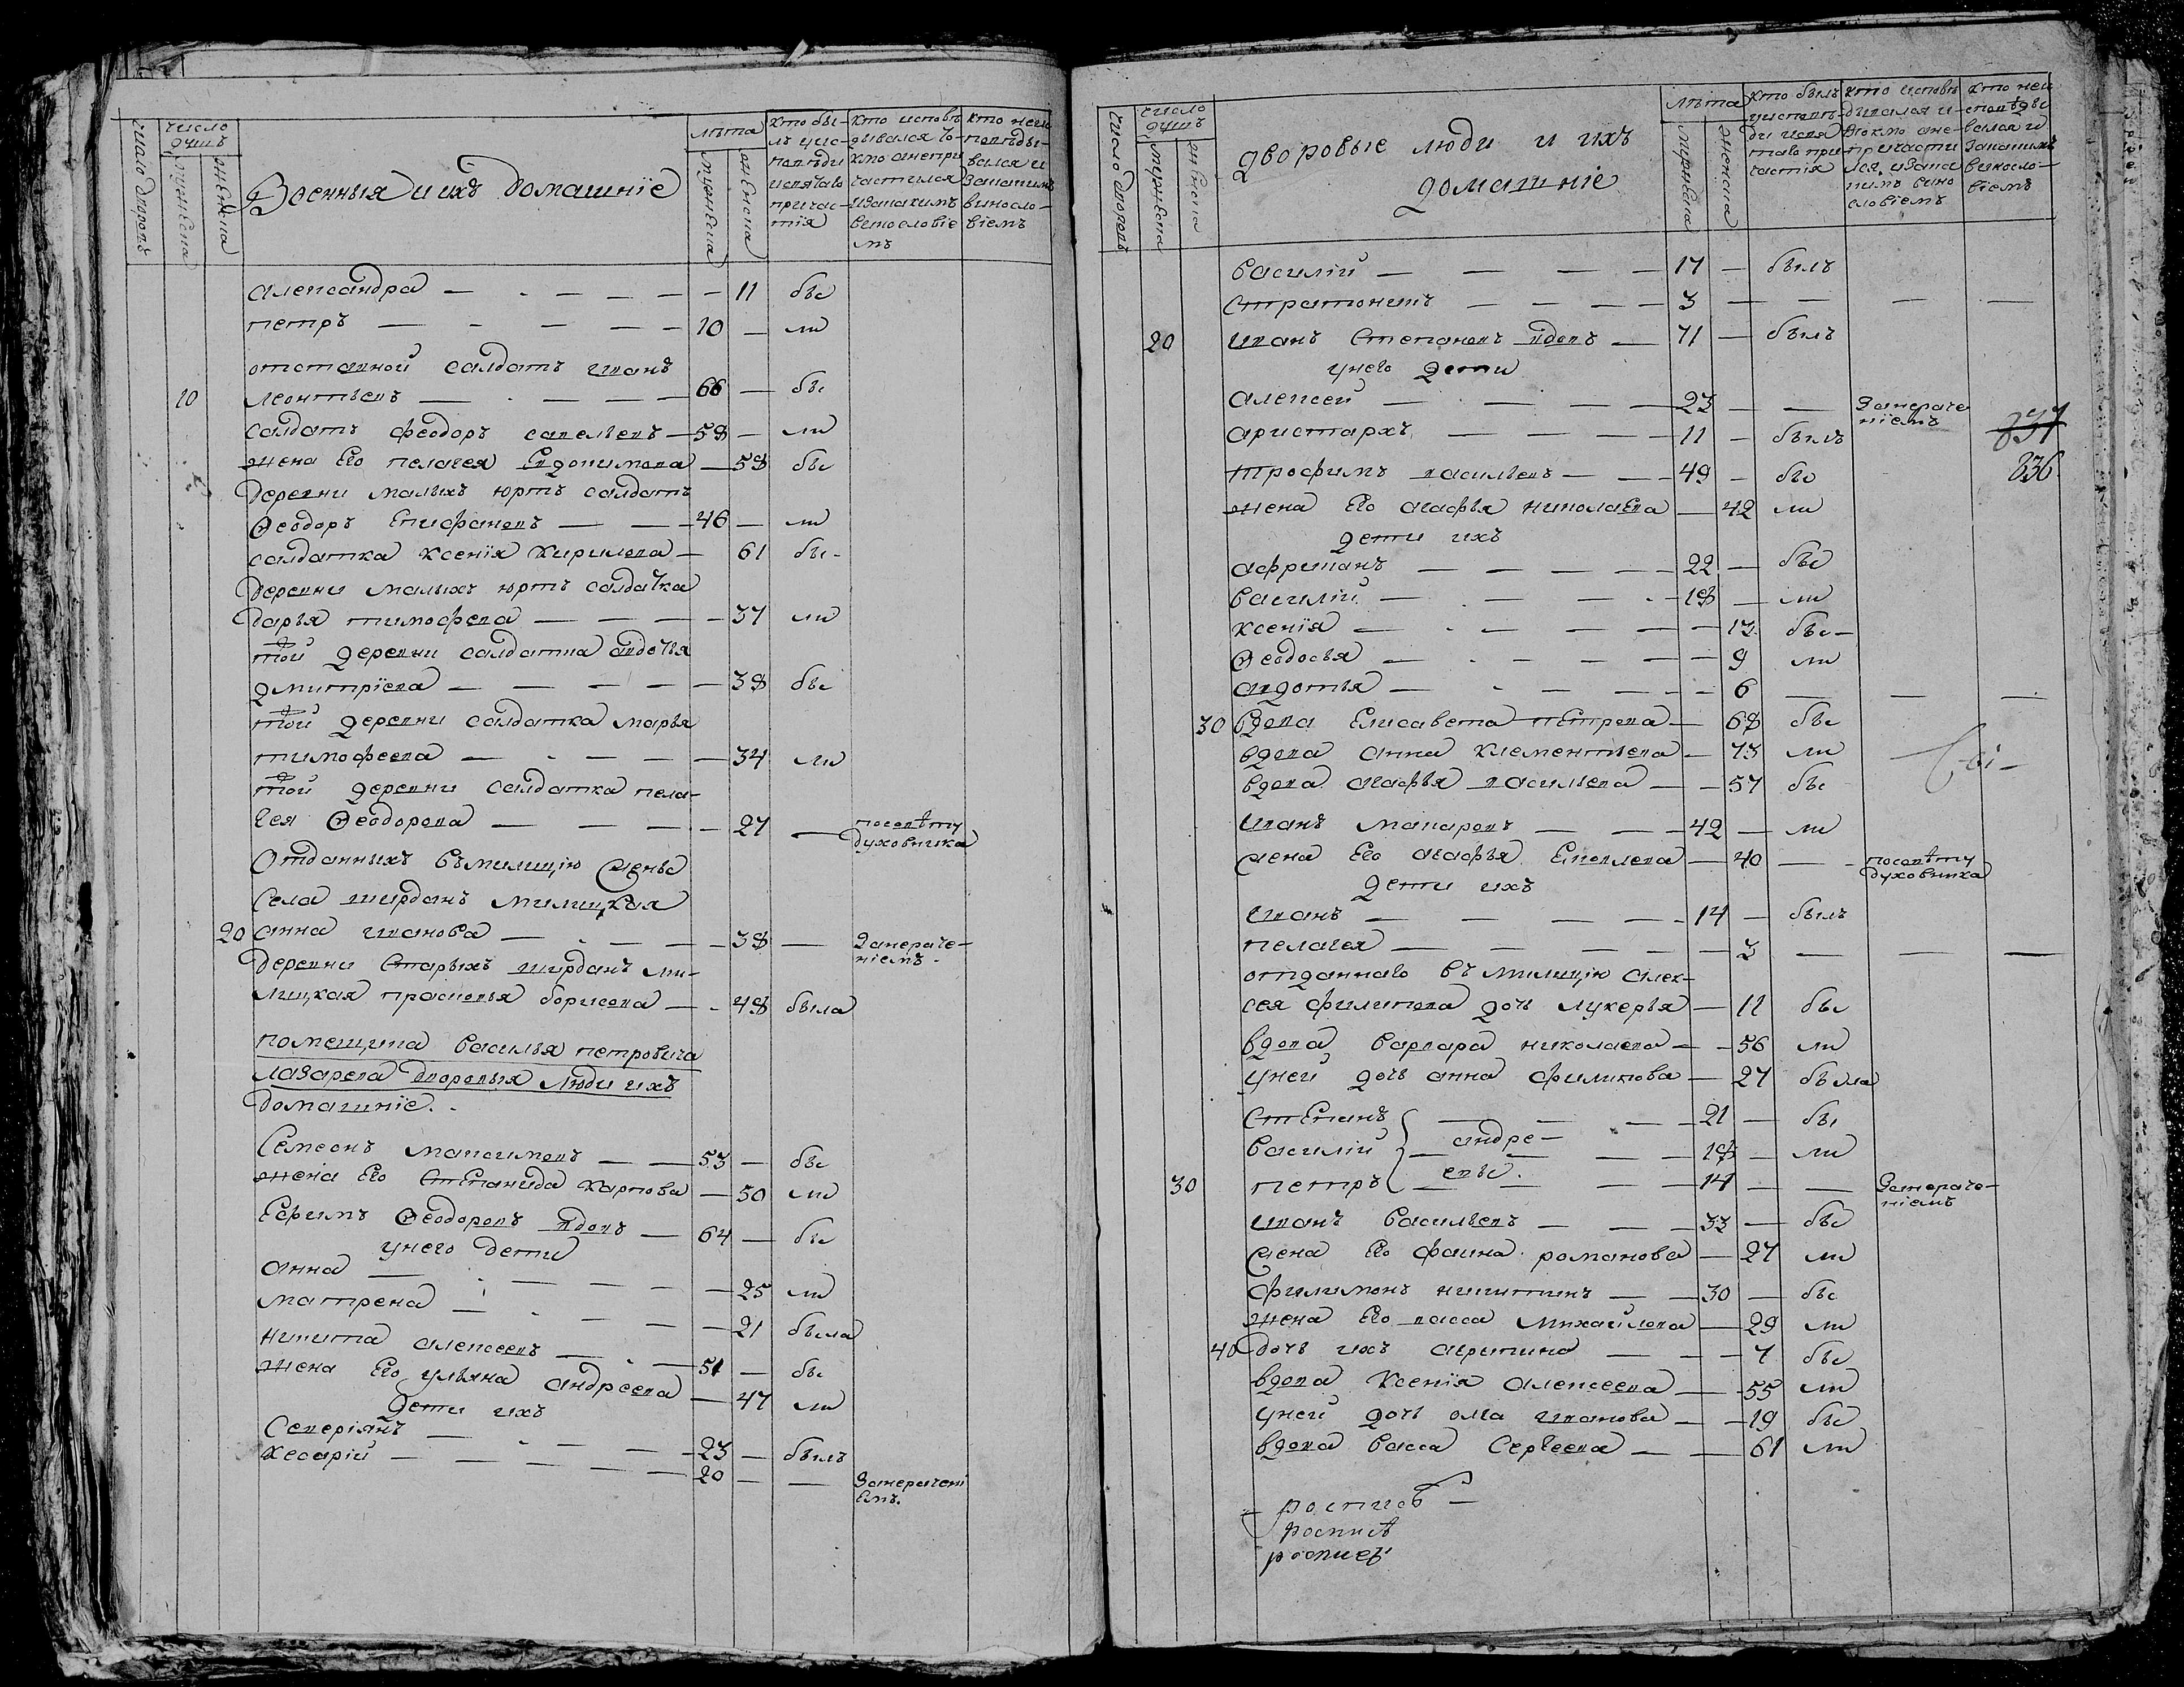 число дворовъ
число душъ
мужеска
женска
Военныя и ихъ домашнïе
лѣта
мужеска
женска
кто бы-
лъ у ис-
повѣди
и святаго
причас-
тïя
кто исповѣ
дывался то-
кмо а не при
частился
и за какимъ
винословïе
мъ
кто неис
повѣды-
вался и
за какимъ
винословïемъ
Александра — 11 бы
петръ — 10 — ли
отставной салдатъ иванъ
10 леонтьевъ — 66 — бы
салдатъ феодоръ савельевъ — 58 — ли
жена Его пелагея Евдокимова — 58 бы
деревни малыхъ юртъ салдатъ
Ѳеодоръ Епифановъ — 46 — ли
салдатка ксенïя кирилова — 61 бы
деревни малыхъ юртъ салдатка
дарья тимофева — 37 ли
той деревни салдатка авдотья
дмитрïева — 38 бы
той деревни салдатка марья
тимофеева — 34 ли
той деревни салдатка пела-
гея Ѳеодорова — 27 — посовѣту духовника
Отданныхъ въ милицïю жены
села ширданъ милицкая
20 анна иванова — 38 — За нераче-нïемъ
деревни старыхъ ширданъ ми-
лицкая прасковья борисова — 48 была
помещика василья петровича
лазарева дворовыя люди ихъ
домашнïе.
Семеонъ максимовъ — 53 — бы
жена Его стЕпанида карпова — 50 ли
Ефимъ Ѳеодоровъ вдовъ — 64 — бы
у него дети
Анна — 25 ли
матрена — 21 была
никита алексеевъ — 51 — бы
жена Его ульяна андреева — 47 ли
дети ихъ
Северïянъ — 23 — былъ
кесарïй — 20 — — За нерачени Емъ.
число дворовъ
число душъ
мужеска
женска
дворовые люди и ихъ
домашнïе
лѣта
мужеска
женска
кто былъ
у исповѣ-
ди и свя
таго при-
частïя
кто исповѣ
дывался и
токмо а не-
причасти
лся, и за ка
кимъ вино
словïемъ
кто неи
сповѣды
вался и
за какимъ
винословïемъ
василïй — 17 — былъ
стратоникъ — 3 — — — —
20 иванъ степановъ вдовъ — 71 — былъ
у него дети
Алексей — 23 — — За нераченïемъ
аристархъ — 11 — былъ
837
836
трофимъ васильевъ — 49 — бы
жена Его агафья николаЕва — 42 ли
дети ихъ
африканъ — 22 — бы
василïй — 18 — ли
ксенïя — 12 бы
Ѳеодосья — 9 ли
авдотья — 6 — — —
30 вдова Елисавета пЕтрова — 68 бы
вдова анна клементьева — 73 ли
вдова агафья васильева — 57 бы
иванъ макаровъ — 42 — ли
жена Его агафья — 40 — посовѣту духовника
дети ихъ
иванъ — 14 — былъ
пелагея — 3 — — —
отданнаго въ милицïю алек-
сея филипова дочь лукерья — 11 бы
вдова варвара николаева — 56 ли
у ней дочь анна филипова — 27 была
стЕпанъ — 21 — бы
василïй } андре- — 18 — ли
30 петръ } евы. — 14 — — За нераче-нïемъ
иванъ васильевъ — 33 — бы
жена Его фаина романова — 27 ли
филимонъ никитинъ — 30 — бы
жена Его васса михайлова — 29 ли
40 дочь ихъ агрипина — 7 бы
вдова ксенïя алексеева — 55 ли
у ней дочь олга иванова — 19 бы
вдова васса сергеева — 61 ли
роспись
роспись
роспись